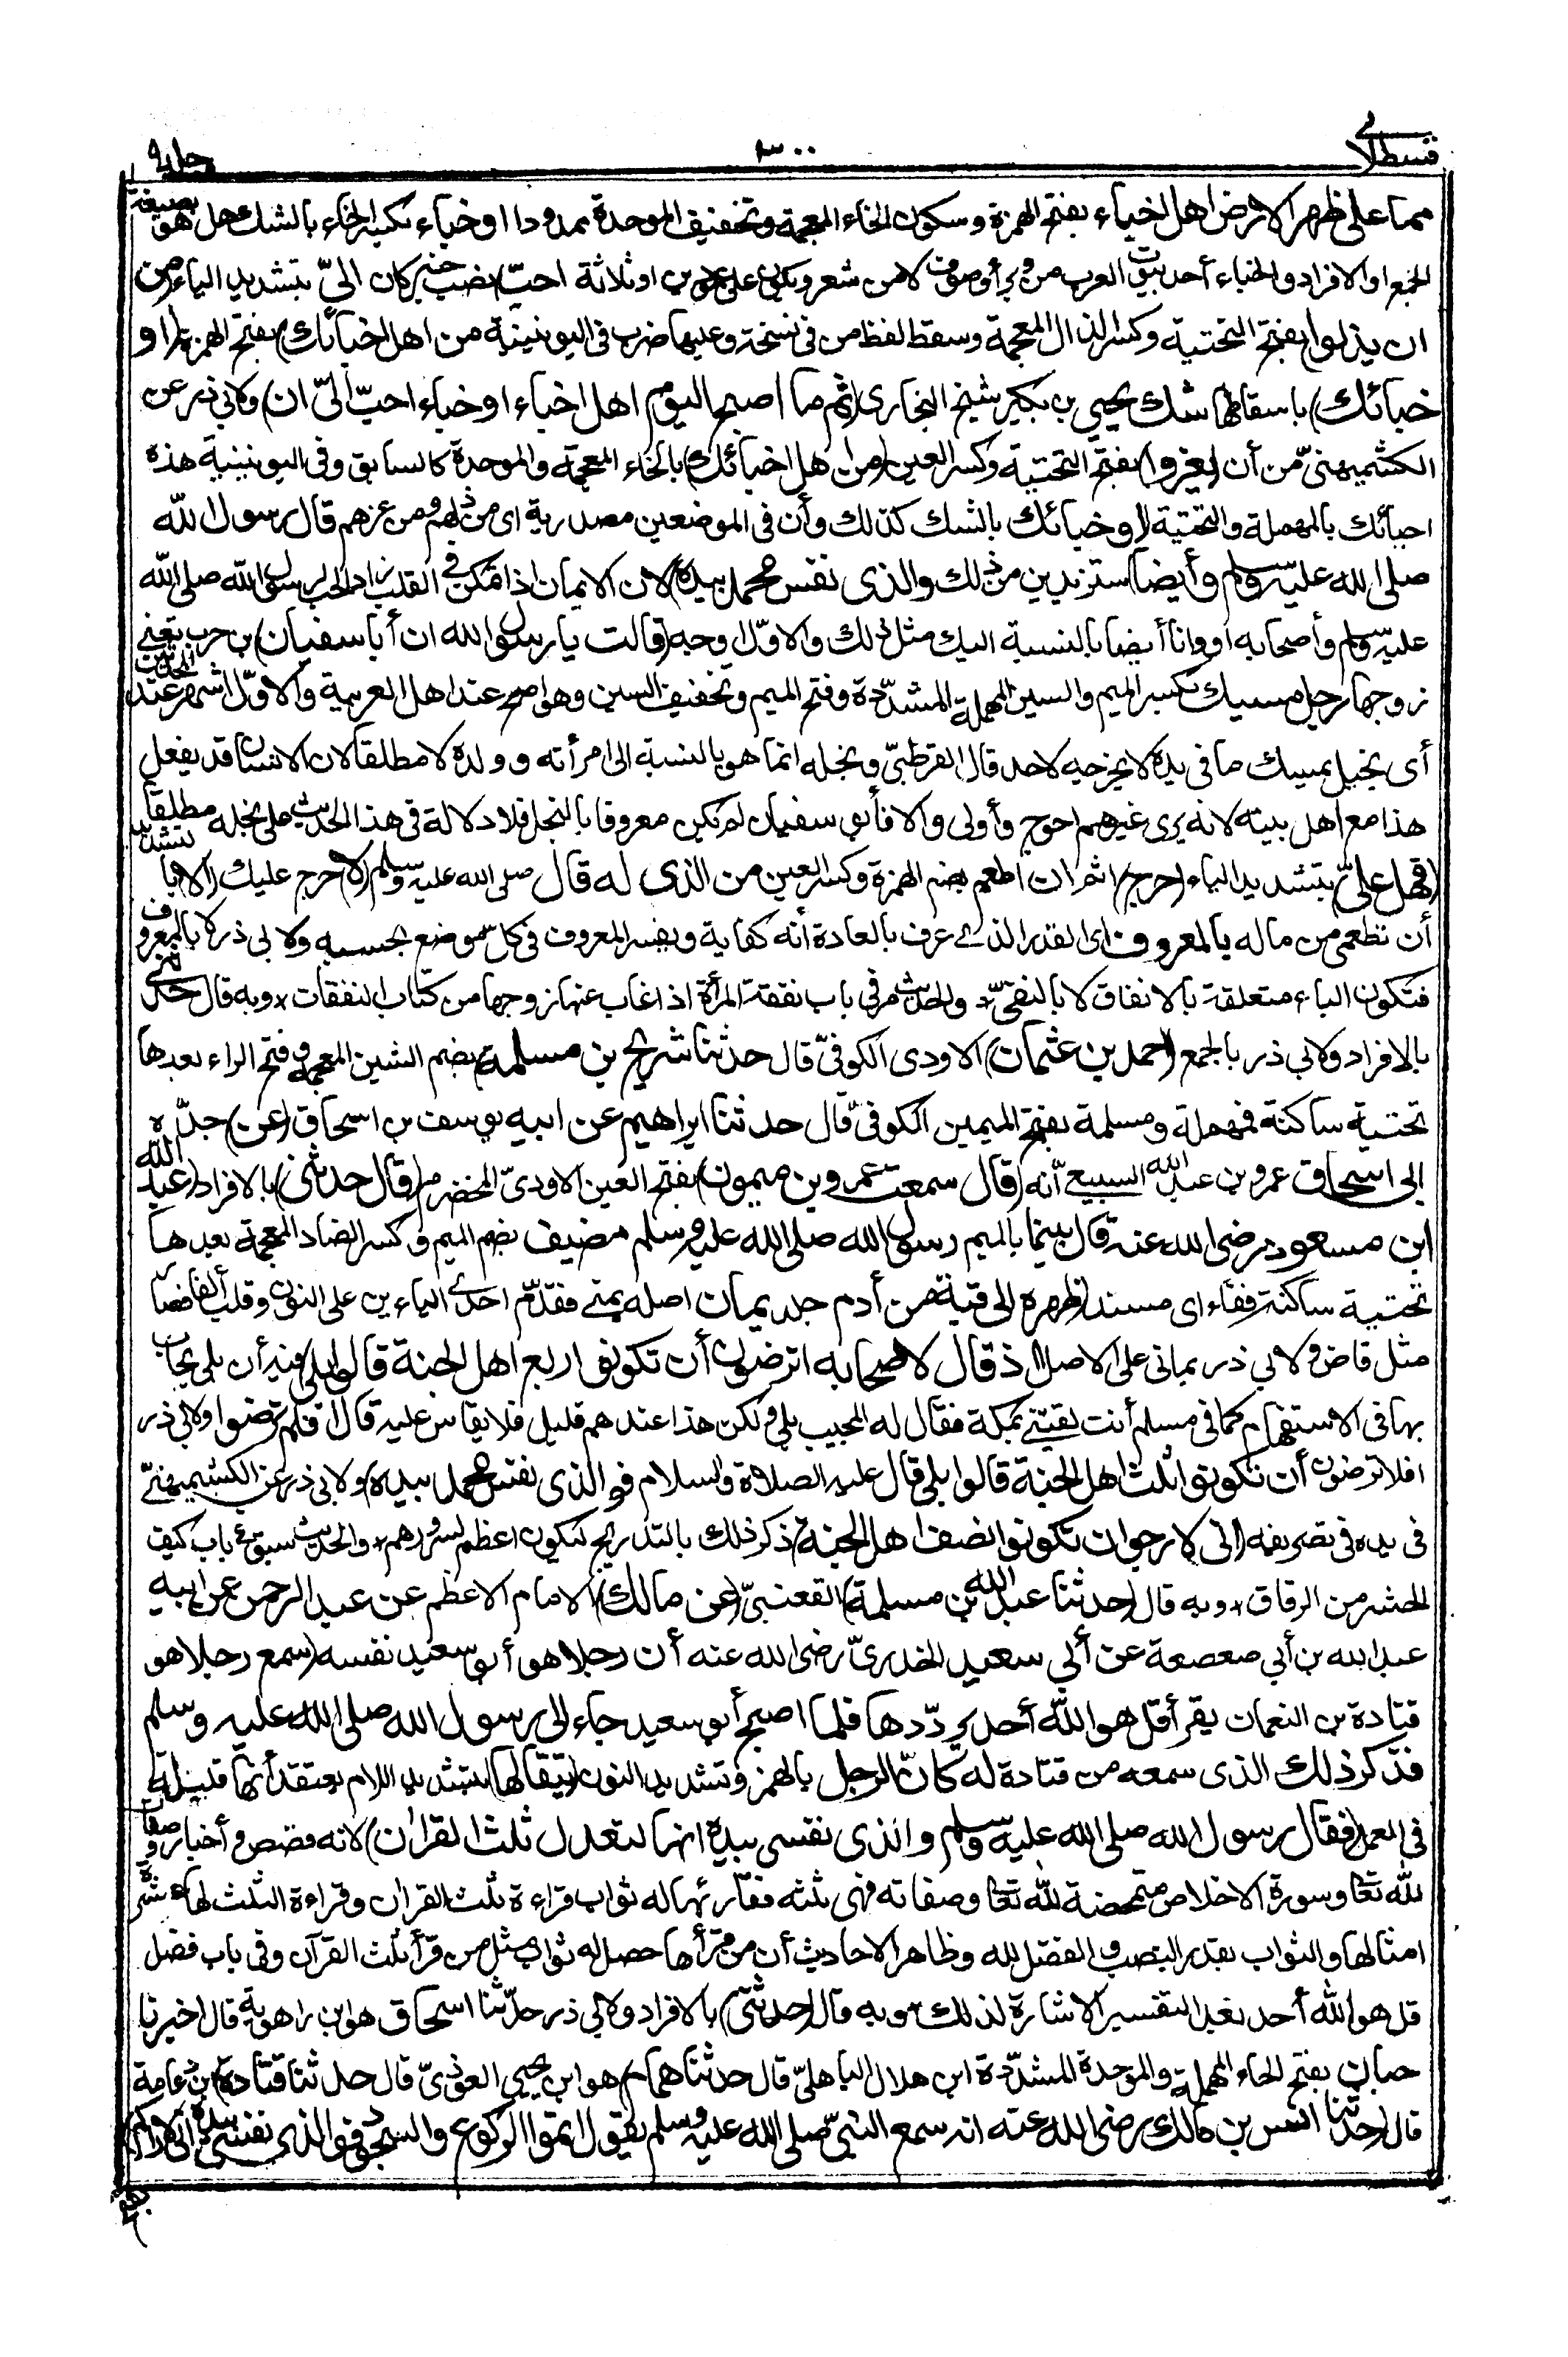 قسطلانی ٣٠٠ جلد ٩
مما على ظهر الارض اهل اخباء بفتح الهمزة وسكون الخاء المعجمة وتخفيف الموحدة ممدودا او خباء بكسر الخاء بالشك هل هو بصيغة
الجمع او الافراد والخباء أحد بيوت العرب من وبر أو صوف لا من شعر ويكون على عمودين او ثلاثة احبّ بنصب خبر كان الىّ بتشديد الياء (من
ان يذلوا) بفتح التحتية وكسر الذال المعجمة وسقط لفظ من فى نسخة وعليها ضرب فى اليونينية من اهل اخبائك) بفتح الهمزة (او
خبائك) باسقاطها شك يحيى بن بكير شيخ البخارى (ثم ما اصبح اليوم اهل اخباء او خباء احبّ الىّ ان) ولابى ذر عن
الكشميهنىّ من أن (يعزوا) بفتح التحتية وكسر العين (من اهل اخبائك) بالخاء المعجمة والموحدة كالسابق وفى اليونينية هذه
احيائك بالمهملة والتحتية (او خبائك بالشك كذلك وأن فى الموضعين مصدرية اى من ذلهم ومن عزهم قال رسول الله
صلى الله عليه وسلم وأيضا) ستزيدين من ذلك والذى نفس محمد بيده) لان الايمان اذا تمكن فى القلب زاد الحب لرسول الله صلى الله
عليه وسلم وأصحابه او وانا أيضا بالنسبة اليك مثل ذلك والاوّل اوجه (قالت يا رسول الله ان أبا سفيان) بن حرب تعنى
زوجها رجل مسيك بكسر الميم والسين المهملة المشدّدة وفتح الميم وتخفيف السين وهو اصح عند اهل العربية والاوّل اشهر عند المحدثين
أى بخيل يمسك ما فى يده لا يخرجه لاحد قال القرطبىّ وبخله انما هو بالنسبة الى امرأته وولده لا مطلقا لان الانسان قد يفعل
هذا مع اهل بيته لانه يرى غيرهم احوج وأولى والا فأبو سفيان لم يكن معروفا بالبخل فلا دلالة فى هذا الحديث على بخله مطلقا
(فهل علىّ) بتشديد الياء (حرج) اثم ان اطعم بضم الهمزة وكسر العين من الذى له قال صلى الله عليه وسلم (لا) حرج عليك (الا) بتشديد
أن تطعمى من ماله بالمعروف اى القدر الذى عرف بالعادة أنه كفاية ويفسر المعروف فى كل موضع بحسبه ولابى ذر لا بالمعروف
فتكون الباء متعلقة بالانفاق لا بالنفى والحديث مرّ فى باب نفقة المرأة اذا غاب عنها زوجها من كتاب النفقات * وبه قال حدثنى
بالافراد ولابى ذر بالجمع (احمد بن عثمان) الاودى الكوفىّ قال حدثنا شريح بن مسلمة) بضم الشين المعجمة وفتح الراء بعدها
تحتية ساكنة فمهملة ومسلمة بفتح الميمين الكوفىّ قال حدثنا ابراهيم عن ابيه يوسف بن اسحاق (عن) جدّه
ابى اسحاق عمرو بن عبد الله السبيعىّ أنه (قال سمعت عمرو بن ميمون) بفتح العين الاودىّ المخضرم (قال حدثنى) بالافراد (عبد الله
ابن مسعود رضى الله عنه قال بينما بالميم رسول الله صلى الله عليه وسلم مضيف بضم الميم وكسر الضاد المعجمة بعدها
تحتية ساكنة ففاء اى مسند (ظهره الى قبة من أدم جلد يمان اصله يمنى فقدّم احدى الياءين على النون وقلب ألفا فصار
مثل قاض ولابى ذر يمانى على الاصل اذ قال لاصحابه اترضون أن تكونوا ربع اهل الجنة قالوا بلى) فيه أن بلى يجاب
بها فى الاستفهام كما فى مسلم أنت لقيتنى بمكة فقال له المجيب بلى ولكن هذا عندهم قليل فلا يقاس عليه قال افلم ترضوا ولابى ذر
افلا ترضون أن تكونوا ثلث اهل الجنة قالوا بلى قال عليه الصلاة والسلام فوالذى نفس محمد بيده) ولابى ذر عن الكشميهنىّ
فى يده فى تصريفه (انى لارجو ان تكونوا نصف اهل الجنة) ذكر ذلك بالتدريج ليكون اعظم لسرورهم * والحديث سبق فى باب كيف
الحشر من الرقاق * وبه قال (حدثنا عبد الله بن مسلمة) القعنبىّ (عن مالك) الامام الاعظم عن عبد الرحمن عن ابيه
عبد الله بن أبى صعصعة عن أبى سعيد الخدرىّ رضى الله عنه أن رجلا هو أبو سعيد نفسه (سمع رجلا هو
قتادة بن النعمان يقرأ قل هو الله أحد يردّدها فلما اصبح أبو سعيد جاء الى رسول الله صلى الله عليه وسلم
فذكر ذلك الذى سمعه من قتادة له كانّ الرجل بالهمز وتشديد النون (يتقالها) بتشديد اللام يعتقد أنها قليلة
فى العمل (فقال رسول الله صلى الله عليه وسلم والذى نفسى بيده انها لتعدل ثلث القرآن) لانه قصص وأخبار وصفات
لله تعالى وسورة الاخلاص متمحضة لله تعالى وصفاته فهى ثلثه فقارئها له ثواب قراءة ثلث القرآن وقراءة الثلث لها عشرة
امثالها والثواب بقدر النصب والفضل لله وظاهر الاحاديث أن من قرأها حصل له ثواب مثل من قرأ ثلث القرآن وفى باب فضل
قل هو الله أحد بعد التفسير الاشارة لذلك * وبه قال (حدثنى) بالافراد ولابى ذر حدّثنا اسحاق هو ابن راهويه قال اخبرنا
حبان بفتح الحاء المهملة والموحدة المشدّدة ابن هلال الباهلىّ قال حدثنا همام) هو ابن يحيى العوذىّ قال حدثنا قتادة) بن دعامة
قال (حدثنا انس بن مالك رضى الله عنه انه سمع النبىّ صلى الله عليه وسلم يقول اتموا الركوع والسجود فوالذى نفسى بيده انى لاراكم